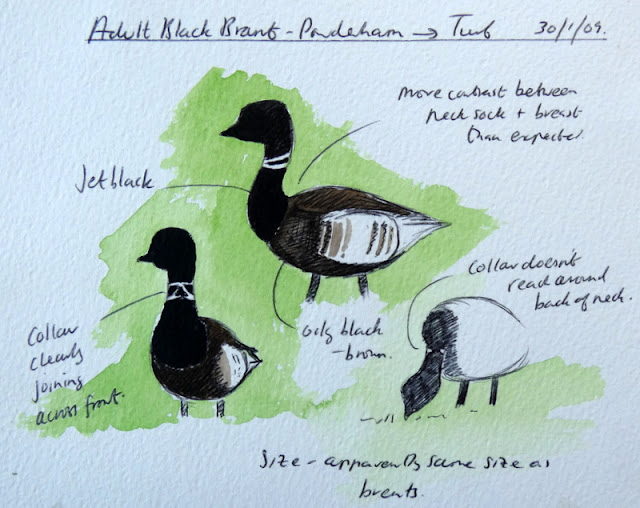 Adult Black Brant - Powderham → Turf 30/1/09.
more contrast between
neck sock + breast
than expected.
Jet black
Collar doesn't
read around
back of neck.
Collar
clearly
joining
across front.
oily black
-brown.
Size - apparently same size as
brents.